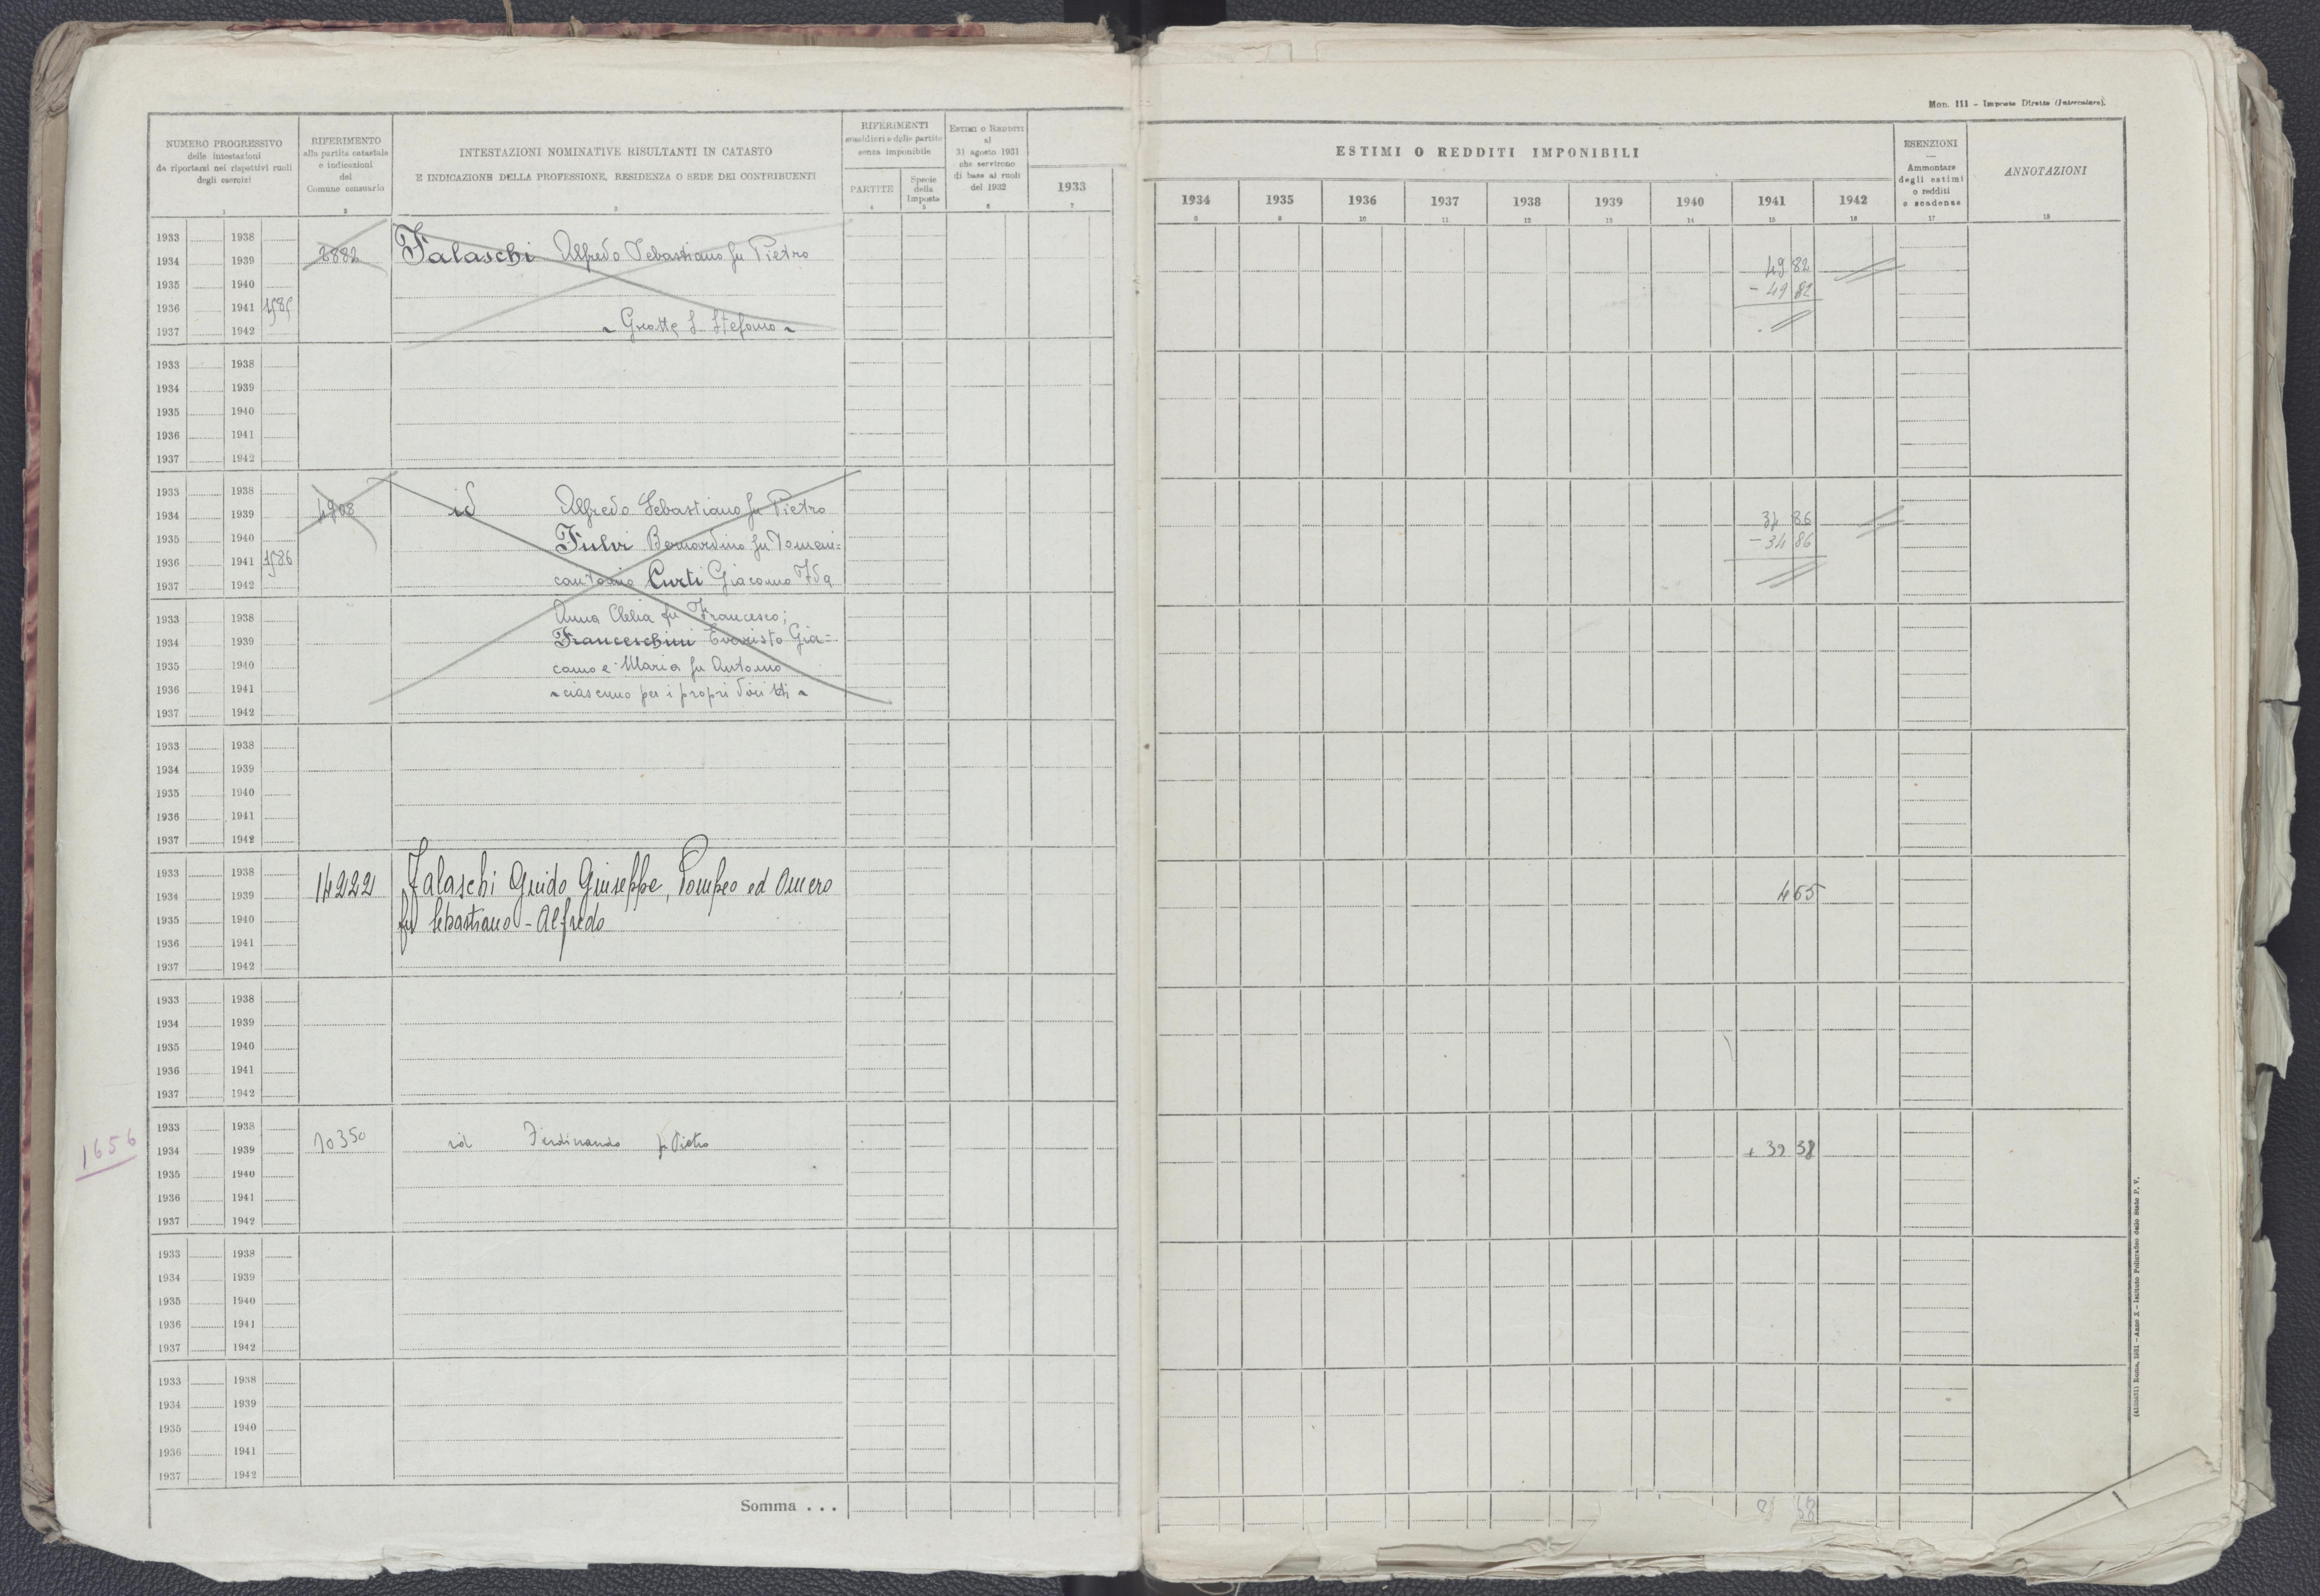 Mon. 111 - Imposte Dirette (Intercalare).
NUMERO PROGRESSIVO
delle intestazioni
da riportarsi nei rispettivi ruoli
degli esercizi
1
RIFERIMENTO
alla partita catastale
e indicazioni
del
Comune censuario
2
INTESTAZIONI NOMINATIVE RISULTANTI IN CATASTO
E INDICAZIONE DELLA PROFESSIONE, RESIDENZA O SEDE DEI CONTRIBUENTI
3
RIFERIMENTI
sussidiari e delle partite
senza imponibile
PARTITE
4
Specie
della
Imposta
5
ESTIMI O REDDITI
al
31 agosto 1931
che servirono
di base ai ruoli
del 1932
6
1933
7
ESTIMI O REDDITI IMPONIBILI
1934 1935 1936 1937 1938 1939 1940 1941 1942
8 9 10 11 12 13 14 15 16
ESENZIONI
—
Ammontare
degli estimi
o redditi
e scadenze
17
ANNOTAZIONI
18
1933 1938
1934 1939 2882 Falaschi Alfredo Sebastiano fu Pietro 49 82
1935 1940 - 49 82
1936 1941 1585
1937 1942 Grotte S. Stefano
1933 1938
1934 1939
1935 1940
1936 1941
1937 1942
1933 1938
1934 1939 4908 id Alfredo Sebastiano fu Pietro 34 86
1935 1940 Fulvi Bernardino fu Domeni= - 34 86
1936 1941 1586
1937 1942 cantonio Curti Giacomo Ida
1933 1938 Anna Clelia fu Francesco;
1934 1939 Franceschini Evaristo Gia=
1935 1940 como e Maria fu Antonio
1936 1941 ciascuno per i propri diritti
1937 1942
1933 1938
1934 1939
1935 1940
1936 1941
1937 1942
1933 1938
1934 1939 14222 Falaschi Guido Giuseppe, Pompeo ed Omero 4 65
1935 1940 fu Sebastiano - Alfredo
1936 1941
1937 1942
1933 1938
1934 1939
1935 1940
1936 1941
1937 1942
1933 1938
1656 1934 1939 10350 id Ferdinando fu Pietro + 39 38
1935 1940
1936 1941
1937 1942
1933 1938
1934 1939
1935 1940
1936 1941
1937 1942
1933 1938
1934 1939
1935 1940
1936 1941
1937 1942
Somma . . .